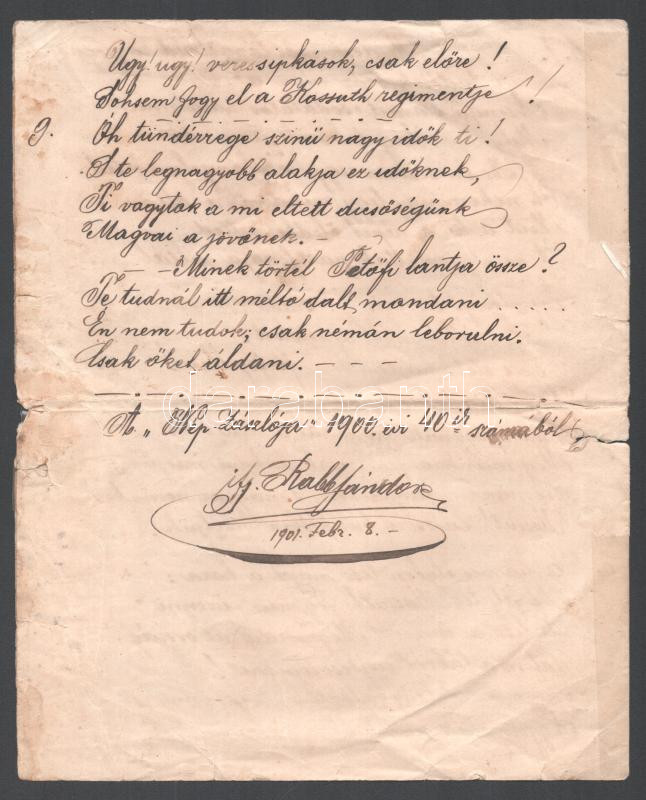 Ugy! ugy! veressipkások, csak előre!
Sohsem fogy el a Kossuth regimentje!!
9. Óh tündérrege szinü nagy idők ti!
S te legnagyobb alakja ez időknek,
Ti vagytok a mi eltett dicsőségünk
Magvai a jövőnek. –
– – Minek törtél Petőfi lantja össze?
Te tudnál itt méltó dalt mondani ......
Én nem tudok; csak némán leborulni.
Csak őket áldani. – – –
darabanth
A „Nép Zászlója 1900. évi 40 ik számából
ifj. Rabb Sándor
1901. Febr. 8. –